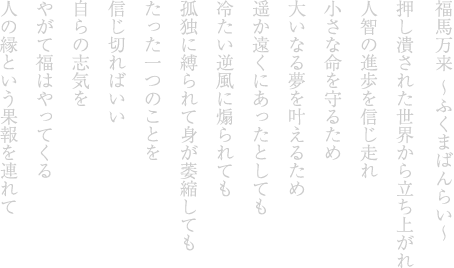 福馬万来 ～ふくまばんらい～
押し潰された世界から立ち上がれ
人智の進歩を信じ走れ
小さな命を守るため
大いなる夢を叶えるため
遥か遠くにあったとしても
冷たい逆風に煽られても
孤独に縛られて身が萎縮しても
たった一つのことを
信じ切ればいい
自らの志気を
やがて福はやってくる
人の縁という果報を連れて